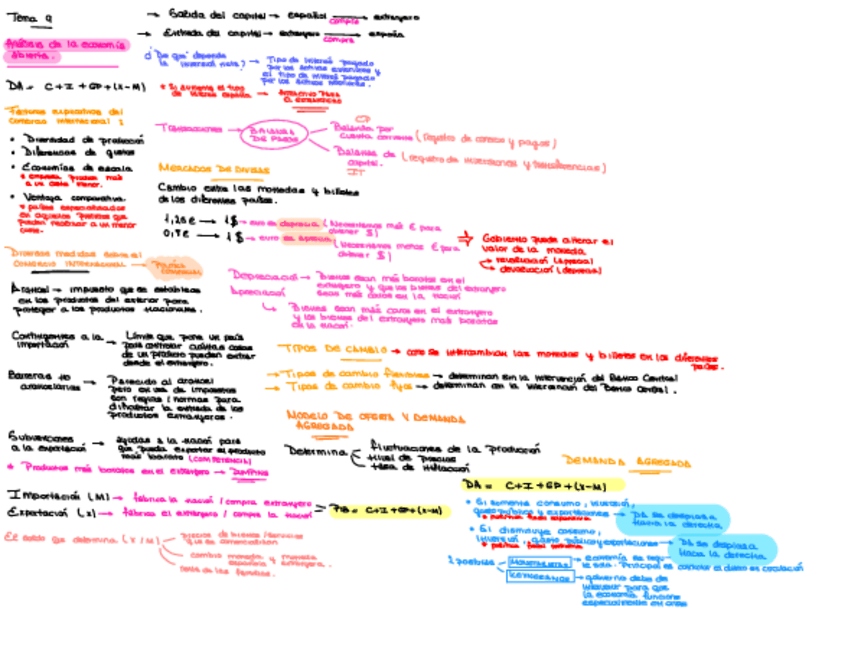 Tema 9
→ Salida del capital → español compra extranjero
→ Entrada del capital → extranjero compra españa
Análisis de la economía
abierta.
¿De qué depende
la inversión neta? → Tipo de interés pagado
por los activos exteriores y
el tipo de interés pagado
por los activos
DA = C+I+GP+(X-M)
* Si aumenta el tipo
de interés español → atractivo para
Factores explicativos del
comercio internacional:
• Diversidad de producción
• Diferencias de gustos
• Economías de escala
• Ventaja comparativa.
Transacciones → BALANZA
DE PAGOS
Balanza por
cuenta corriente (registro de cobros y pagos)
Balanza de
capital. (registro de inversiones y transferencias)
MERCADOS DE DIVISAS
Cambio entre las monedas y billetes
de los diferentes países.
1,25€ → 1$ → euro se deprecia (Necesitamos más € para
obtener $)
0,75€ → 1$ → euro se aprecia (Necesitamos menos € para
obtener $)
⇒ Gobierno puede alterar el
valor de la moneda
revaluación (aprecia)
devaluación (deprecia)
Diversas medidas sobre el
COMERCIO INTERNACIONAL → Política
comercial
Arancel → impuesto que se establece
en los productos del exterior para
proteger a los productos nacionales.
Depreciación → Bienes sean más baratos en el
extranjero y que los bienes del extranjero
sean más caros en la nación
Apreciación
↳ Bienes sean más caros en el extranjero
y los bienes del extranjero más baratos
en la nación.
Contingentes a la
importación → Límite que pone un país
para controlar cuántas cosas
de un producto pueden entrar
desde el extranjero.
TIPOS DE CAMBIO → como se intercambian las monedas y billetes en los diferentes
países.
→ Tipos de cambio flexibles → determinan sin la intervención del Banco Central
→ Tipos de cambio fijos → determinan con la intervención del Banco Central.
Barreras no
arancelarias → Parecido al arancel
pero en vez de impuestos
son reglas / normas para
dificultar la entrada de los
productos extranjeros.
MODELO DE OFERTA Y DEMANDA
AGREGADA
Subvenciones
a la exportación → ayudas a la nación para
que pueda exportar el producto
más barato (COMPETENCIA)
* Productos más baratos en el extranjero → DUMPING
Determina
fluctuaciones de la producción
nivel de precios
tasa de inflación
DEMANDA AGREGADA
DA = C+I+GP+(X-M)
Importación (M) → fabrica la nación / compra extranjero
Exportación (X) → fabrica el extranjero / compra la nación
= PIB = C+I+GP+(X-M)
• Si aumenta consumo, inversión,
gasto público y exportaciones → DA se desplaza
hacia la derecha
* política fiscal expansiva
• Si disminuye consumo,
inversión, gasto público y exportaciones → DA se desplaza
hacia la izquierda
El saldo que determina (X/M)
precios de bienes/servicios
que se comercializan
cambio moneda y moneda
española extranjera.
renta de las familias.
2 posibles
MONETARISTAS → economía se regula sola. Principal es controlar el dinero en circulación
KEYNESIANOS → gobierno debe de
intervenir para que
la economía funcione
especialmente en crisis